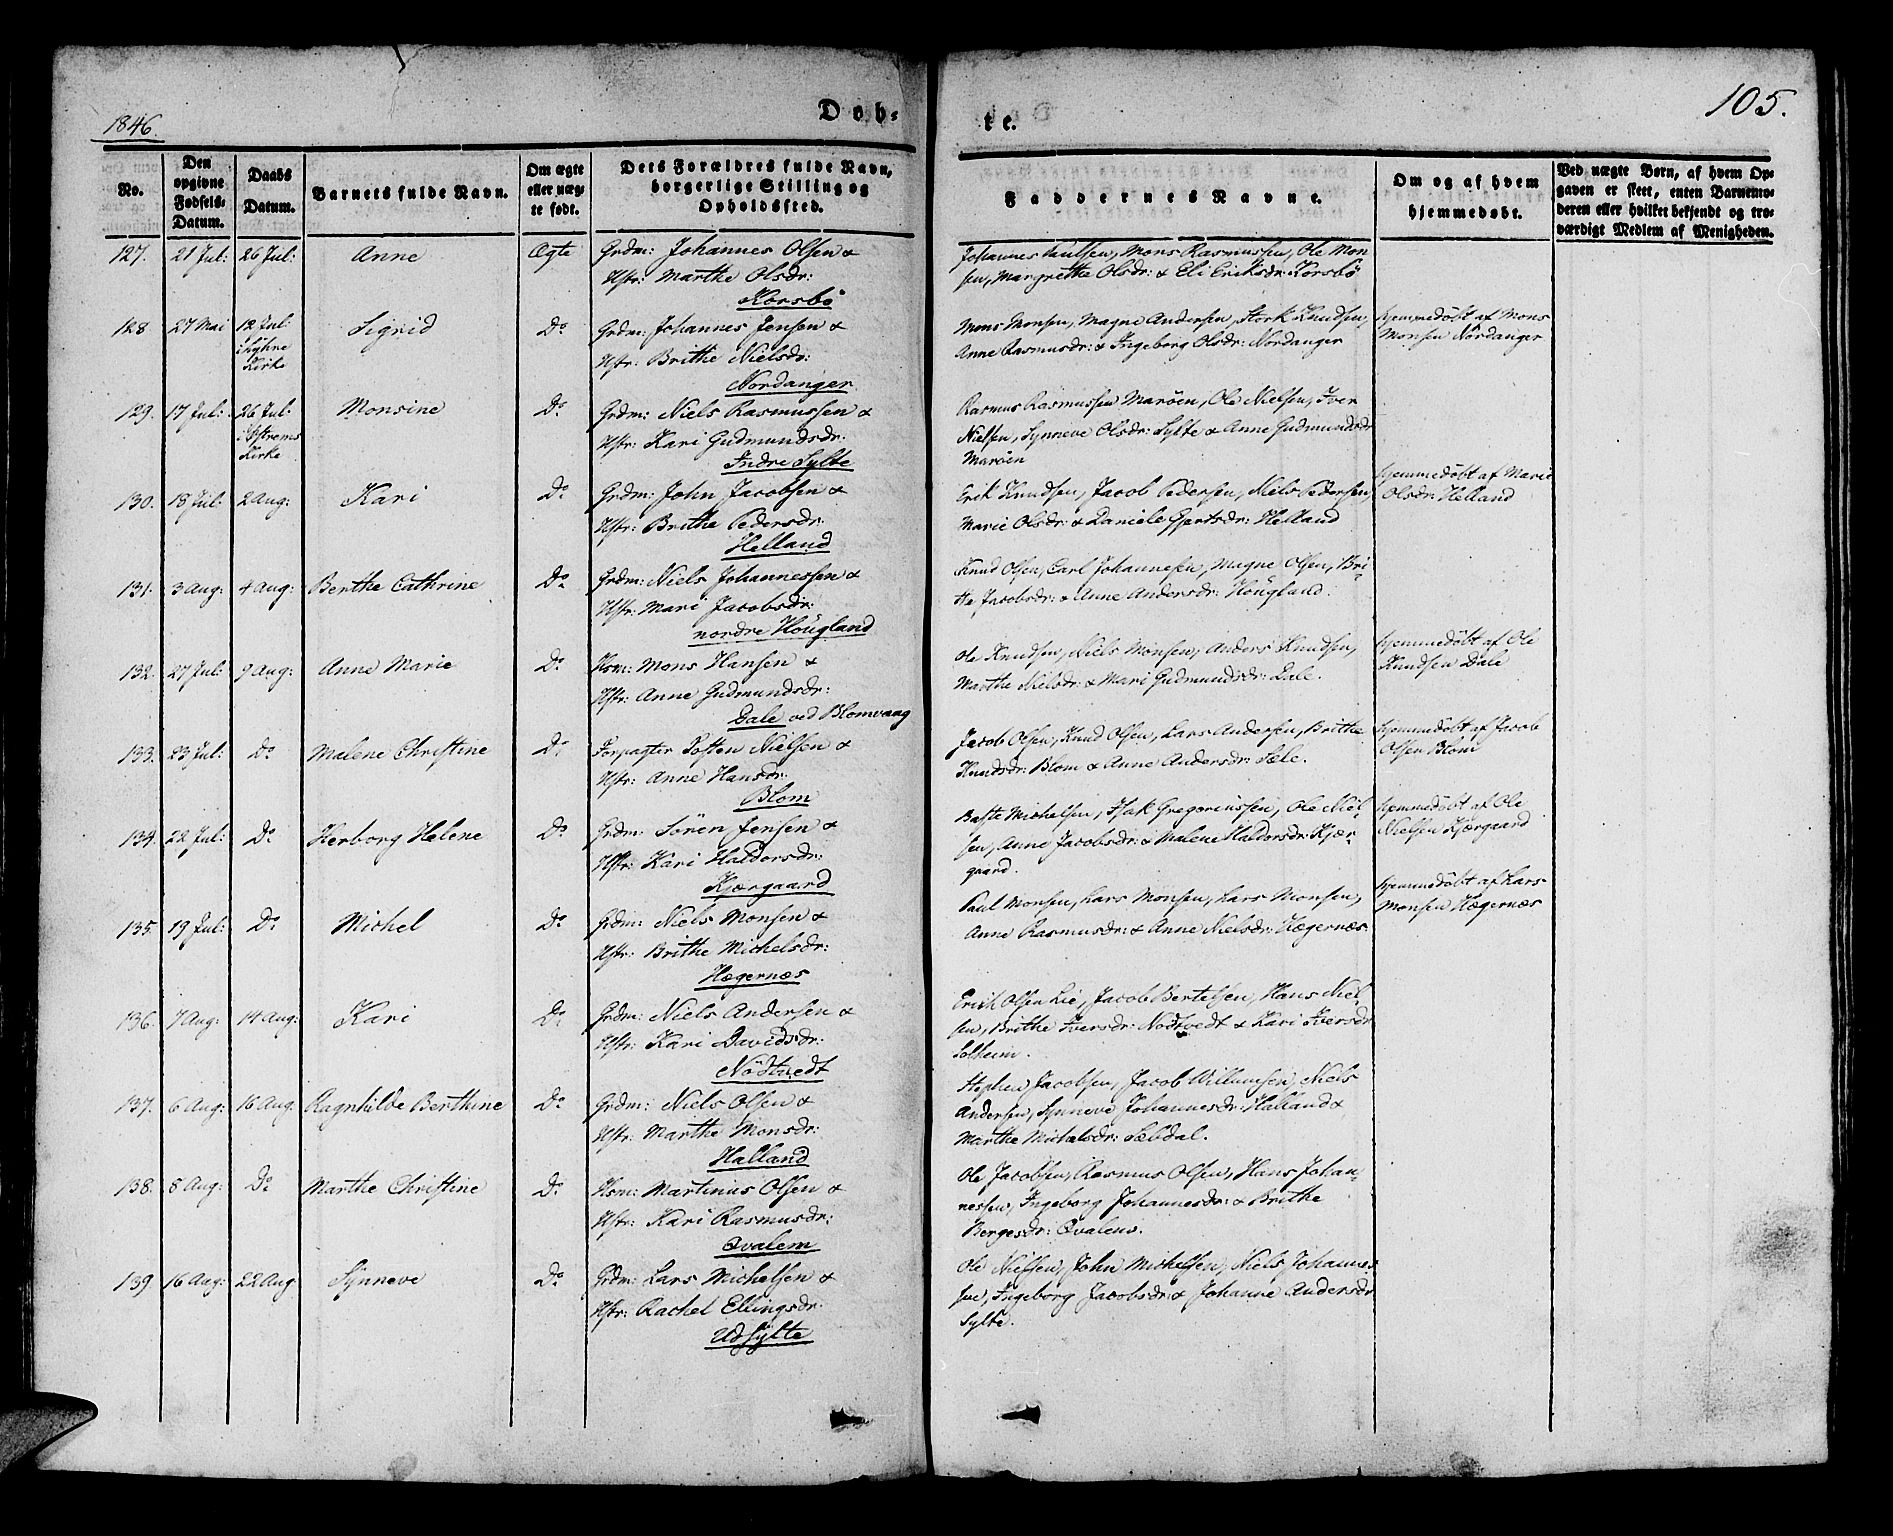 1846.
Døb-
te.
105.
No.
Den opgivne Fødsels-Datum.
Daabs Datum.
Barnets fulde Navn.
Om ægte eller uægte født.
Dets Forældres fulde Navn, borgerlige Stilling og Opholdssted.
Faddernes Navne.
Om og af hvem hjemmedøbt.
Ved uægte Børn, af hvem Op-
gaven er skeet, enten Barnemo-
deren eller hvilket bekjendt og tro-
værdigt Medlem af Menigheden.
127. 21 Jul: 26 Jul: Anne Ægte Grdm: Johannes Olsen &
Hstr: Marthe Olsdr:
Korsbö
Johannes Paulsen, Mons Rasmussen, Ole Mon
sen, Margrethe Olsdr: & Eli Eriksdr: Korsbö
128 27 Mai 12 Jul: Sigrid Do Grdm: Johannes Jensen &
Kirke
Hstr: Brithe Nielsdr:
Nordanger
Mons Monsen, Magne Andersen, Stork Knudsen,
Anne Rasmusdr: & Ingeborg Olsdr: Nordanger
hjemmedöbt af Mons
Monsen Nordanger
129. 17 Jul: 26 Jul: Monsine Do Grdm: Niels Rasmussen &
Kirke
Hstr: Kari Gudmundsdr:
Indre Sylte
Rasmus Rasmussen Maröen, Ole Nielsen, Iver
Nielsen, Synneve Olsdr: Sylte & Anne Gudmundsdr
Maröen
130. 18 Jul: 2 Aug: Kari Do Grdm: John Jacobsen &
Hstr: Brithe Pedersdr:
Helland
Erik Knudsen, Jacob Pedersen, Niels Pedersen,
Marie Olsdr: & Daniele Gjertsdr: Helland
hjemmedöbt af Marie
Olsdr: Helland
131. 3 Aug: 4 Aug: Berthe Cathrine Do Grdm: Niels Johannessen &
Hstr: Mari Jacobsdr:
nordre Höugland
Knud Olsen, Carl Johannesen, Magne Olsen, Bri-
the Jacobsdr: & Anne Andersdr: Höugland.
132. 27 Jul: 9 Aug: Anne Marie Do Hsm: Mons Hansen &
Hstr: Anne Gudmundsdr:
Dale ved Blomvaag
Ole Knudsen, Niels Monsen, Anders Knudsen,
Marthe Nielsdr: & Mari Gudmundsdr: Dale.
hjemmedöbt af Ole
Knudsen Dale
133. 23 Jul: Do Malene Christine Do Forpagter Tosten Nielsen &
Hstr: Anne Hansdr:
Blom
Jacob Olsen, Knud Olsen, Lars Andersen, Brithe
Knudsdr: Blom & Anne Andersdr: Sæle.
hjemmedöbt af Jacob
Olsen Blom
134. 22 Jul: Do Herborg Helene Do Grdm: Sören Jensen &
Hstr: Kari Haldorsdr:
Kjærgaard
Baste Michelsen, Isak Gregoriussen, Ole Niel-
sen, Anne Jacobsdr: & Malene Haldorsdr: Kjær-
gaard.
hjemmedöbt af Ole
Nielsen Kjærgaard
135. 19 Jul: Do Michel Do Grdm: Niels Monsen &
Hstr: Brithe Michelsdr:
Hægernæs
Paul Monsen, Lars Monsen, Lars Monsen,
Anne Rasmusdr: & Anne Nielsdr: Hægernæs
hjemmedöbt af Lars
Monsen Hægernæs
136. 7 Aug: 14 Aug: Kari Do Grdm: Niels Andersen &
Hstr: Kari Davidsdr:
Nödtvedt
Erik Olsen Lie, Jacob Bertelsen, Hans Niel-
sen, Brithe Iversdr: Nödtvedt & Kari Iversdr
Solheim.
137. 6 Aug: 16 Aug. Ragnhilde Berthine Do Grdm: Niels Olsen &
Hstr: Marthe Monsdr:
Halland
Stephen Jacobsen, Jacob Willumsen, Niels
Andersen, Synneve Johannesdr: Halland &
Marthe Michelsdr: Sæbdal.
138. 8 Aug: Do Marthe Christine Do Hsm: Martinus Olsen &
Hstr: Kari Rasmusdr:
Qvalem
Ole Jacobsen, Rasmus Olsen, Hans Johan-
nessen, Ingeborg Johannesdr: & Brithe
Bergesdr: Qvalens.
139 16 Aug: 22 Aug Synneve Do Grdm: Lars Michelsen &
Hstr: Rachel Ellingsdr:
Udsylte
Ole Nielsen, John Michelsen, Niels Johannes-
sen, Ingeborg Jacobsdr: & Johanne Andersdr
Sylte.